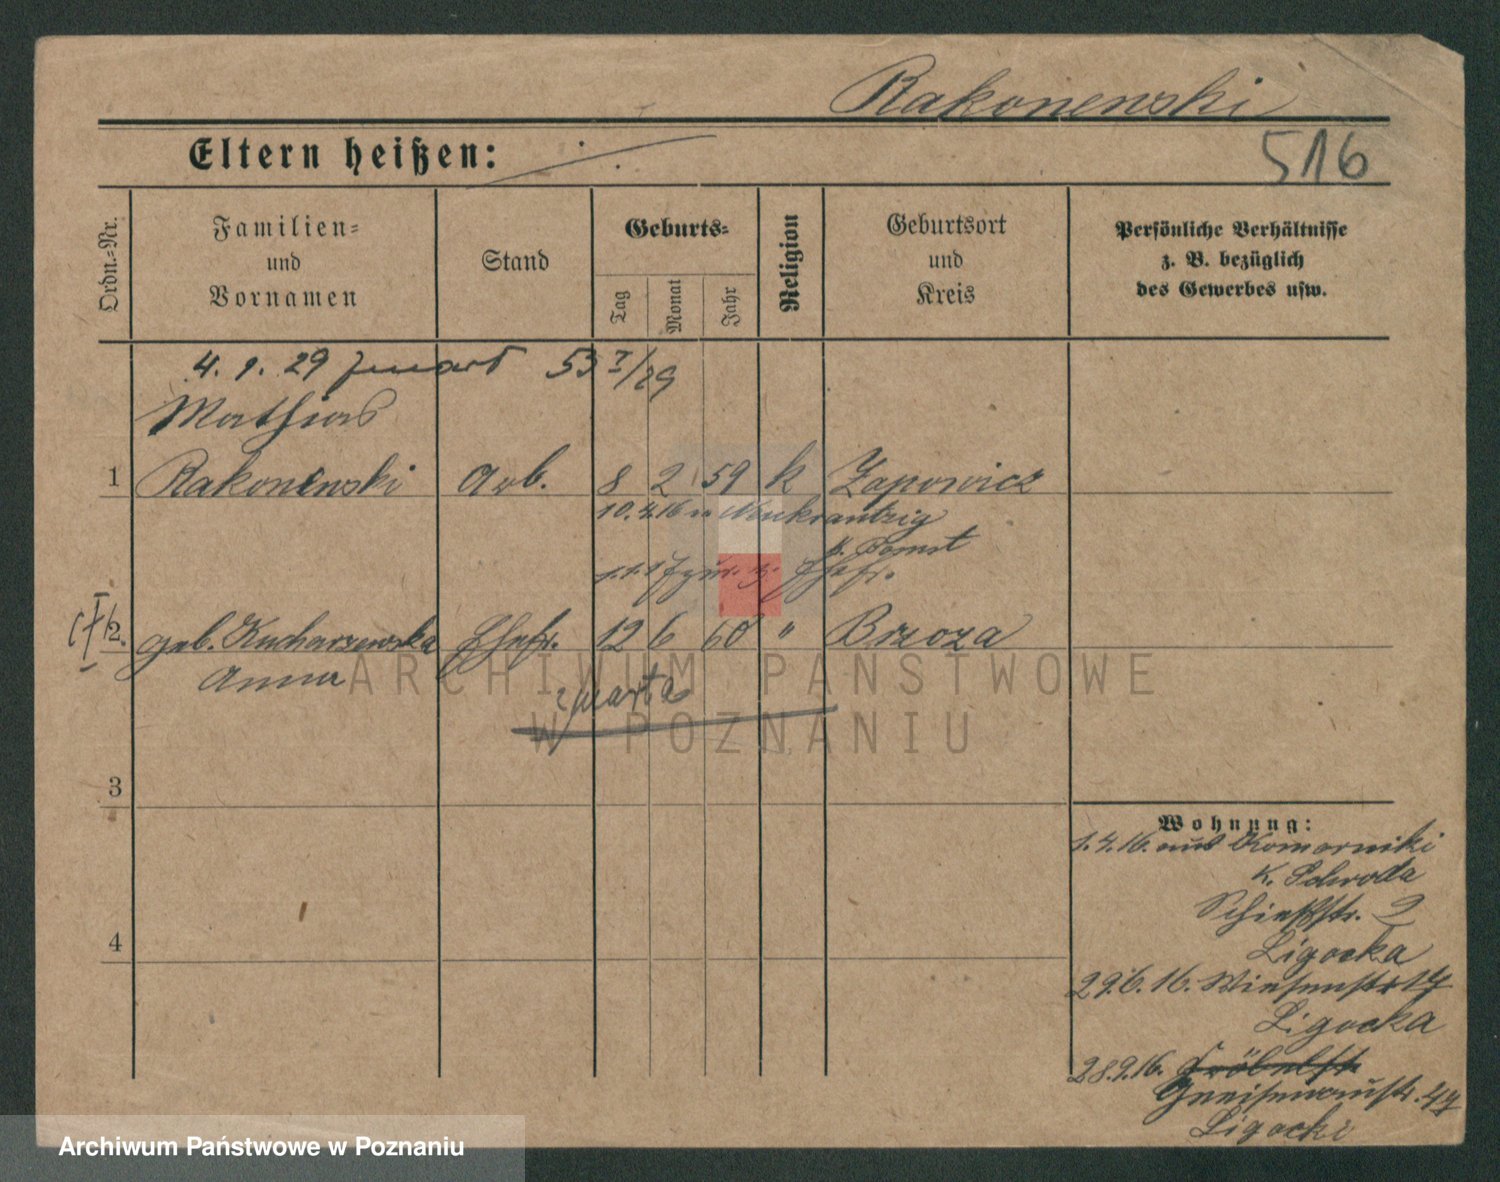 Rakonenski
516
Eltern heißen:
Ordn.-Nr.
Familien-
und
Vornamen
Stand
Geburts-
Tag
Monat
Jahr
Religion
Geburtsort
und
Kreis
Persönliche Verhältnisse
z. B. bezüglich
des Gewerbes usw.
4. 1. 29 53 I/29
Mathias
1 Rakonenski Arb. 8 2 59 k Zapowicz
10.4.16 n Neukrantzig
k. Bomst
z. Ehefr.
2. geb. Kucharzewska Ehefr. 12 6 60 " Brzoza
Anna
ARCHIWUM PAŃSTWOWE
W POZNANIU
3
4
Wohnung:
1.4.16. aus Komorniki
K. Schroda
Schießstr. 2
Ligocka
29.6.16. Wiesenstr 14
Ligocka
28.9.16. Fröbelstr
Gneisenaustr. 44
Ligocki
Archiwum Państwowe w Poznaniu